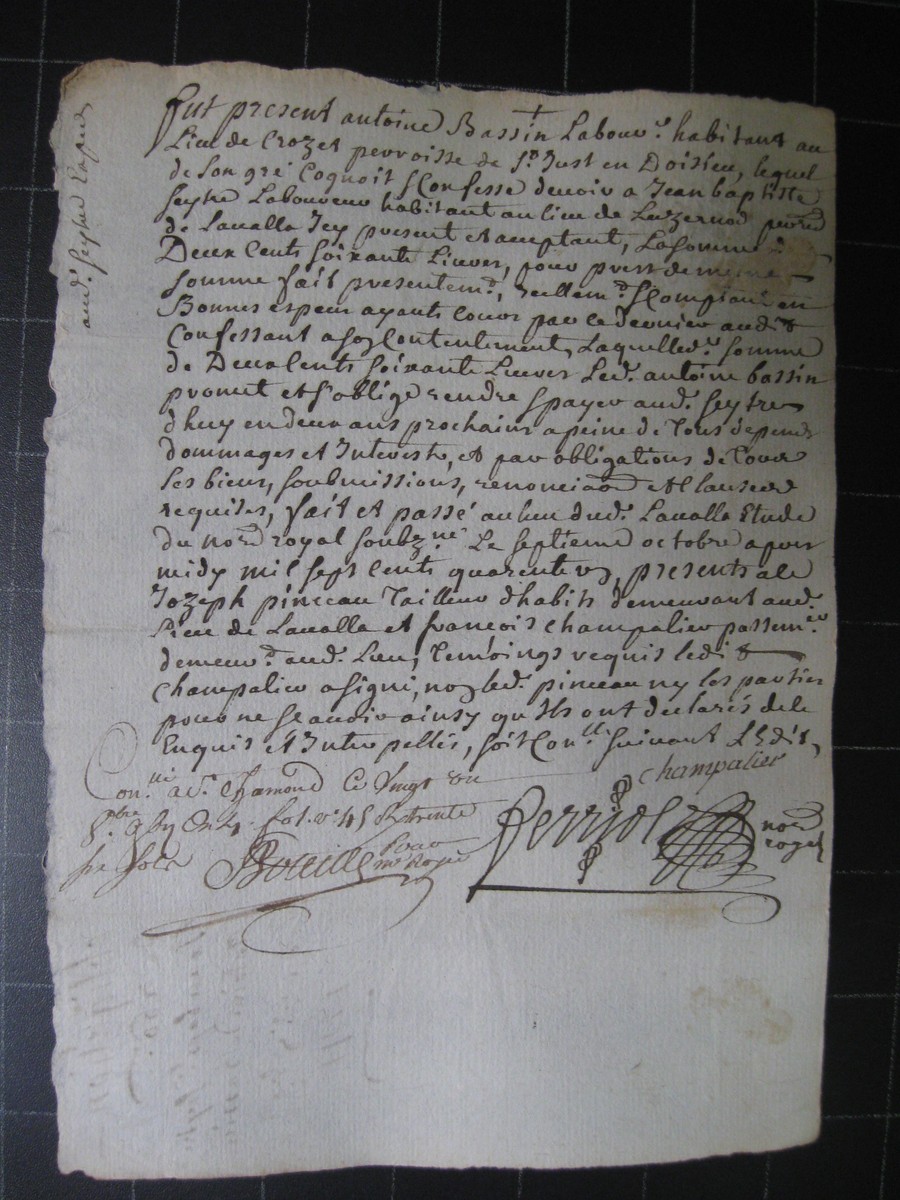 aud. Seytre Lapnd
fut present antoine Bassin Labour. habitant au
Lieu de Crozet perroisse de St Just en Doisieu, lequel
de son gré Cognoit & Confesse devoir a Jean baptiste
Seytre Laboureur habitant au lieu de Luzernod perr
de Lavalla Icy present et aceptant, La somme d
Deux Cents soixante Livres, pour prest de meme
somme fait presentemt, reellemt & Comptant en
Bonnes especes ayants cours par ce dernier audit
Confessant a son Contentement, Laquelle d. somme
de Deux Cents soixante Livres Led. antoine bassin
promet et s'oblige rendre & payer aud. Seytre
d'huy en deux ans prochains a peine de Tous depends
dommages et Interests, et par obligations de tous
ses biens, soubmissions, renonciaõn et Clauses
requises, fait et passé au lieu dud. Lavalla Etude
du nore royal soubzné Le septieme octobre apres
midy mil sept cents quarente , presents a ce
Jozeph pinceau Tailleur d'habits demeurant aud.
Lieu de Lavalla et francois Champalier passemer
demeurt aud. Lieu, Temoings requis ledit
Champalier a signé, non led. pinceau ny les parties
pour ne scavoir ainsy qu'Ils ont declarés de ce
Enquis et Interpellés, soit Conllé suivant L'Edit,
Champalier
Conllé a St Chamond Ce Vingt un
8bre fol. vo 45 R trente
six sols
Perriol nore
royal